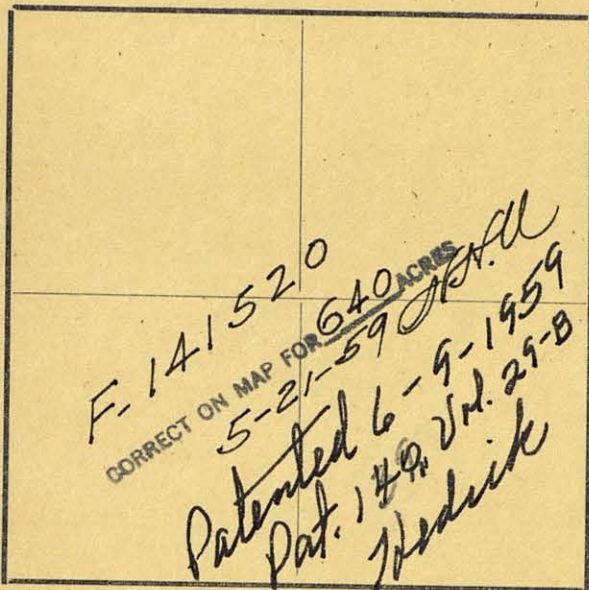 F-141520
CORRECT ON MAP FOR 640 ACRES
5-21-59
Patented 6-9-1959
Pat. Vol. 29-B
Hedrick